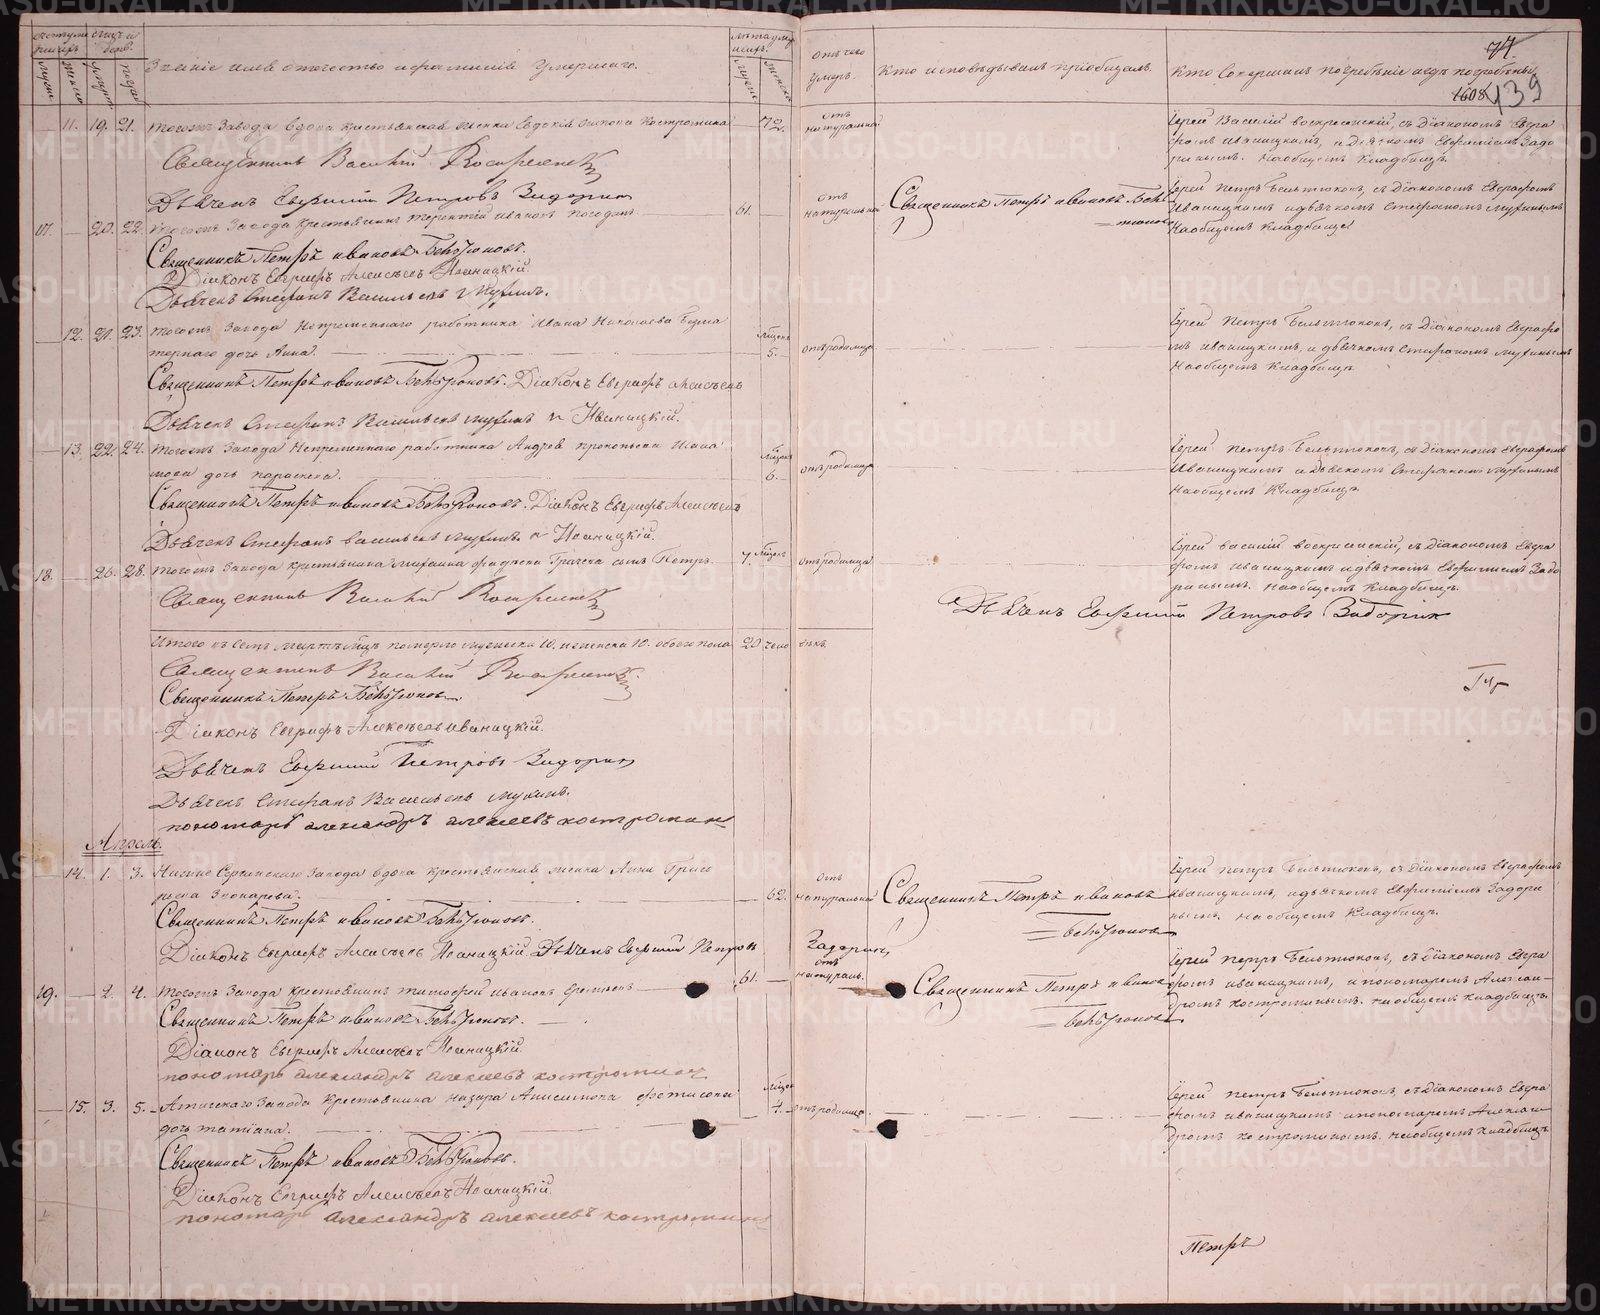 Званіе имя отечество и фамилія умершаго.
Отъ чего умеръ.
Кто исповѣдывалъ и пріобщалъ.
Кто совершалъ погребеніе и гдѣ погребены
74
1608
139
11. 19. 21. Тогожъ Завода вдова крестьянская женка Евдокія
72.
отъ натуральной
Іерей Василій Воскресенскій, съ Діакономъ Евгра
фомъ Иваницкимъ, и Дьячкомъ Евфиміемъ Задо
ринымъ. На общемъ Кладбищѣ.
Священникъ Василій Воскресенскій
Дьячекъ Евфимій Петровъ Задоринъ
17. — 20. 22. Тогожъ Завода Крестьянинъ Терентій Ивановъ Погодинъ
61.
отъ натуральной
Священникъ Петръ Ивановъ Бель
тюковъ
Іерей Петръ Бельтюковъ, съ Діакономъ Евграфомъ
Иваницкимъ и дьячкомъ Стефаномъ Мухинымъ
На общемъ Кладбищѣ
Священникъ Петръ Ивановъ Бельтюковъ.
Діаконъ Евграфъ Алексѣевъ Иваницкій.
Дьячекъ Стефанъ Васильевъ Мухинъ.
— 12. 21. 23. Тогожъ Завода Непременнаго работника Ивана Николаева
дочь Анна.
мѣсец
5.
отъ родимца
Іерей Петръ Бельтюковъ, съ Діакономъ Евграфо
мъ Иваницкимъ, и дьячкомъ Стефаномъ Мухинымъ
На общемъ Кладбищѣ
Священникъ Петръ Ивановъ Бельтюковъ. Діаконъ Евграфъ Алексѣевъ
Дьячекъ Стефанъ Васильевъ Мухинъ Иваницкій.
— 13. 22. 24. Тогожъ Завода Непременнаго работника Андрея Прокопьева
дочь Параскева.
мѣсец
6.
отъ родимца
Іерей Петръ Бельтюковъ, съ Діакономъ Евграфомъ
Иваницкимъ и Дьячкомъ Стефаномъ Мухинымъ
На общемъ Кладбищѣ
Священникъ Петръ Ивановъ Бельтюковъ. Діаконъ Евграфъ Алексѣевъ
Дьячекъ Стефанъ Васильевъ Мухинъ Иваницкій.
18. — 26. 28. Тогожъ Завода Крестьянина Михаила сынъ Петръ.
7. мѣсец
отъ родимца
Іерей Василій Воскресенскій, съ Діакономъ Евгра
фомъ Иваницкимъ и дьячкомъ Евфиміемъ Задо
ринымъ. На общемъ Кладбищѣ.
Священникъ Василій Воскресенскій
Дьячекъ Евфимій Петровъ Задоринъ
Итого въ семъ Мартѣ м-цѣ померло мужеска 10. и женска 10. обоего пола 20 чело вѣкъ.
Священникъ Василій Воскресенскій.
Священникъ Петръ Бельтюковъ
Діаконъ Евграфъ Алексѣевъ Иваницкій.
Дьячекъ Евфимій Петровъ Задоринъ
Дьячекъ Стефанъ Васильевъ Мухинъ.
пономарь александръ алексѣевъ костроминъ
Апрель.
— 14. 1. 3. Нижне Сергинскаго Завода вдова крестьянская женка Анна Григо
рьева
62.
отъ натуральной
Священникъ Петръ Ивановъ
Бельтюковъ
Іерей Петръ Бельтюковъ, съ Діакономъ Евграфомъ
Иваницкимъ, и дьячкомъ Евфиміемъ Задори
нымъ. На общемъ Кладбищѣ.
Священникъ Петръ Ивановъ Бельтюковъ.
Діаконъ Евграфъ Алексѣевъ Иваницкій. Дьячекъ Евфимій Петровъ Задоринъ
19. — 2. 4. Тогожъ Завода крестьянинъ Тимофей Ивановъ
61.
отъ натураль.
Священникъ Петръ Ивановъ
Бельтюковъ
Іерей Петръ Бельтюковъ, съ Діакономъ Евгра
фомъ Иваницкимъ, и пономаремъ Алексан
дромъ Костроминымъ. На общемъ Кладбищѣ.
Священникъ Петръ Ивановъ Бельтюковъ.
Діаконъ Евграфъ Алексѣевъ Иваницкій.
пономарь александръ алексѣевъ костроминъ
— 15. 3. 5. Атигскаго Завода Крестьянина Назара Анисимова
дочь Татіана.
мѣсец
4.
отъ родимца.
Іерей Петръ Бельтюковъ, съ Діакономъ Евгра
фомъ Иваницкимъ и пономаремъ Алексан
дромъ Костроминымъ. На общемъ Кладбищѣ
Священникъ Петръ Ивановъ Бельтюковъ.
Діаконъ Евграфъ Алексѣевъ Иваницкій.
пономарь александръ алексѣевъ костроминъ
Петръ
METRIKI.GASO-URAL.RU